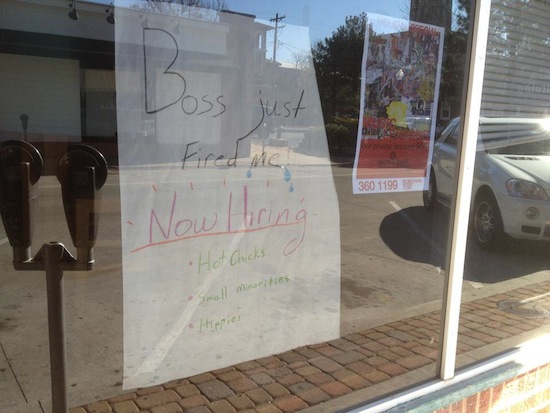 Boss just
Fired me
Now Hiring
• Hot Chicks
• Small minorities
• Hippies
360 1199